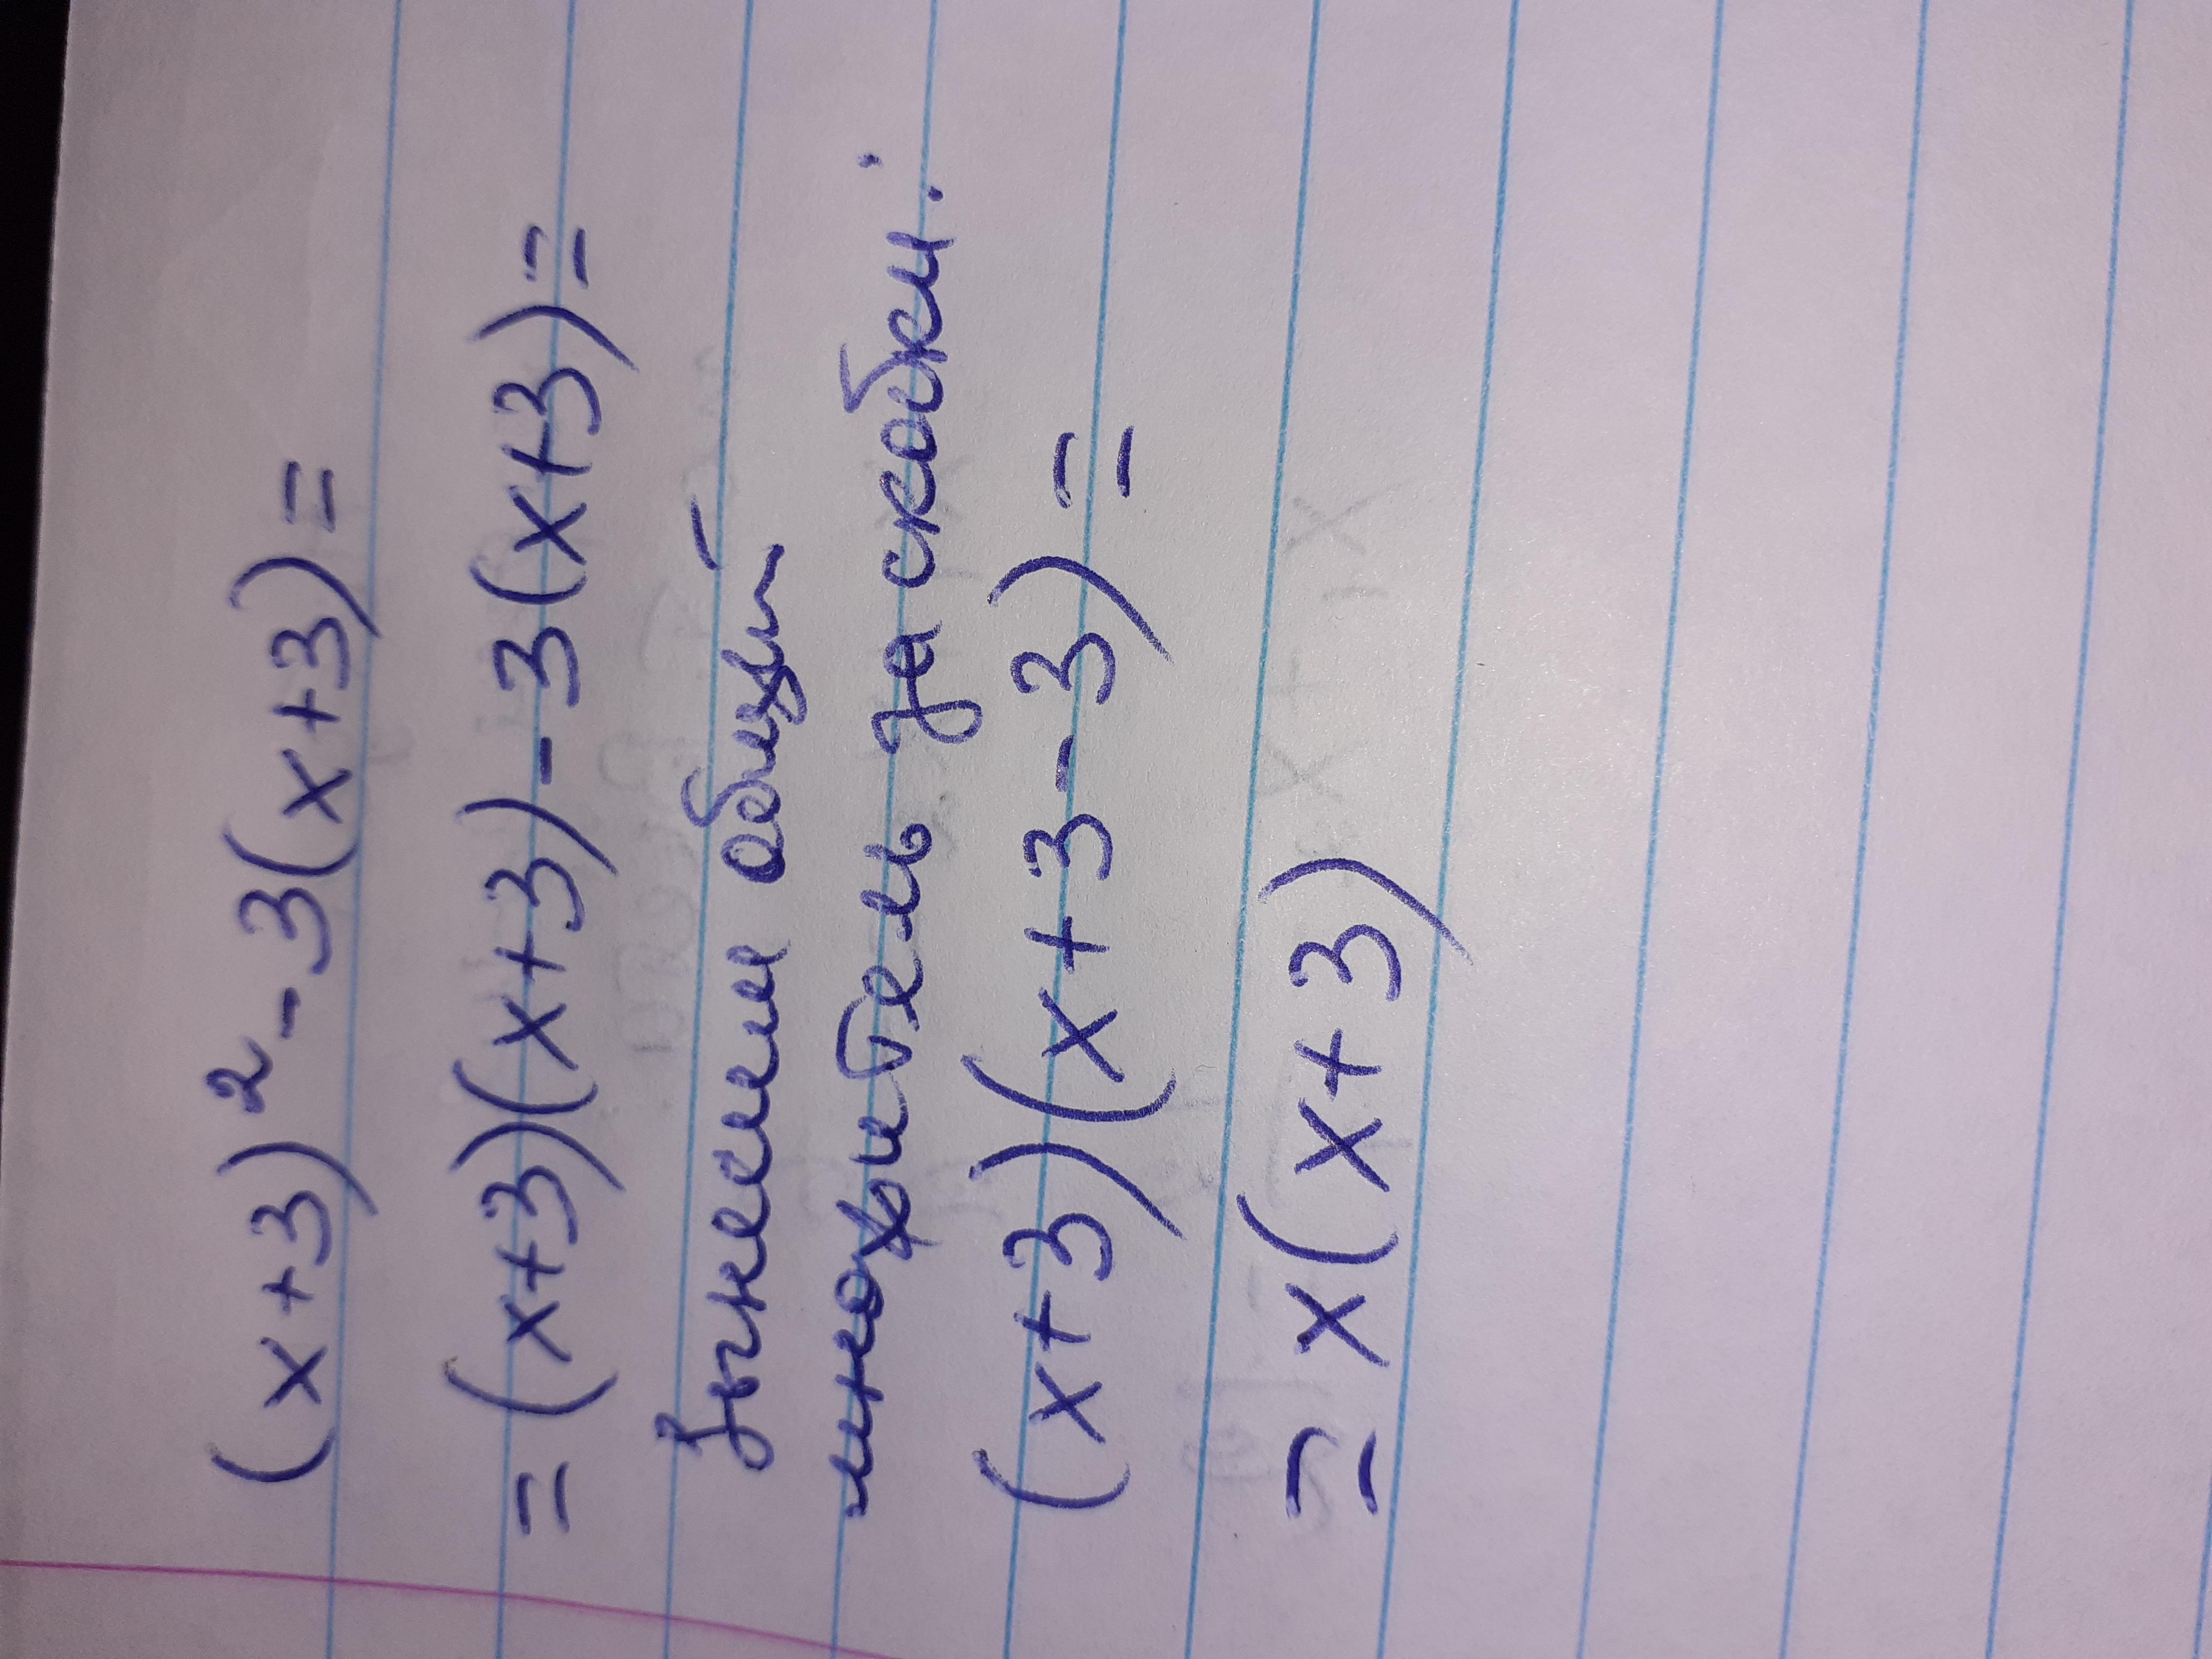 (x+3)²-3(x+3)=
=(x+3)(x+3)-3(x+3)=
Вынесем общий
множитель за скобки:
(x+3)(x+3-3)=
=x(x+3)